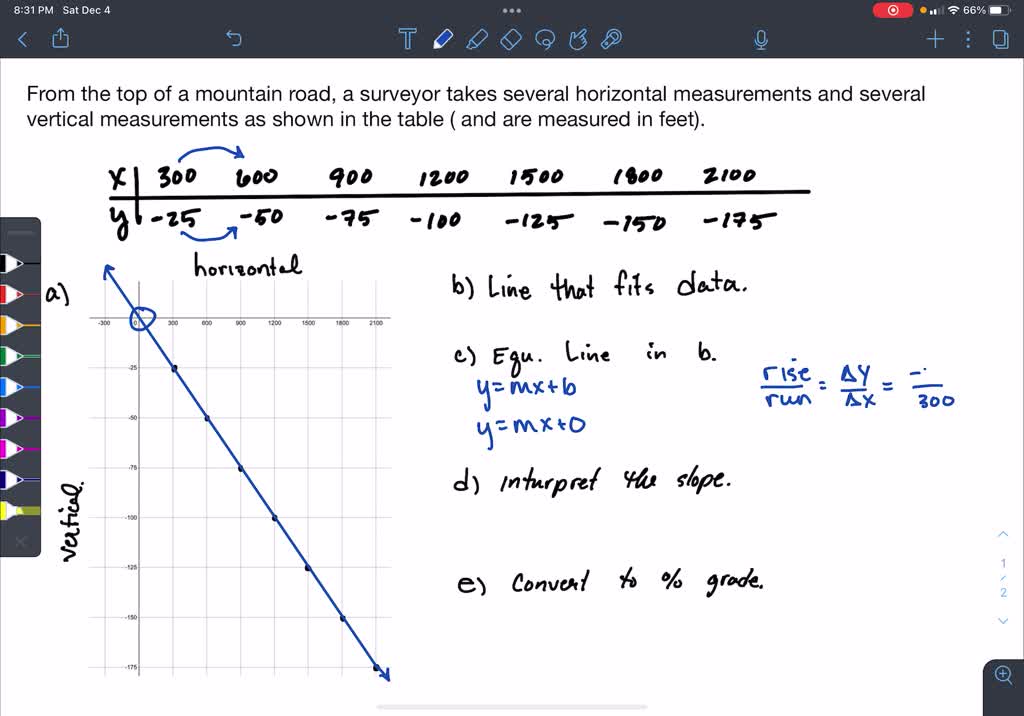 8:31 PM Sat Dec 4
66%
T
From the top of a mountain road, a surveyor takes several horizontal measurements and several
vertical measurements as shown in the table ( and are measured in feet).
x 300 600 900 1200 1500 1800 2100
y -25 -50 -75 -100 -125 -150 -175
horizontal
a)
-300 0 300 600 900 1200 1500 1800 2100
-25
-50
-75
-100
-125
-150
-175
vertical.
b) Line that fits data.
c) Equ. Line in b.
y=mx+b
y=mx+0
rise/run = ΔY/ΔX = -/300
d) inturpret the slope.
e) Convert to % grade.
1
/
2